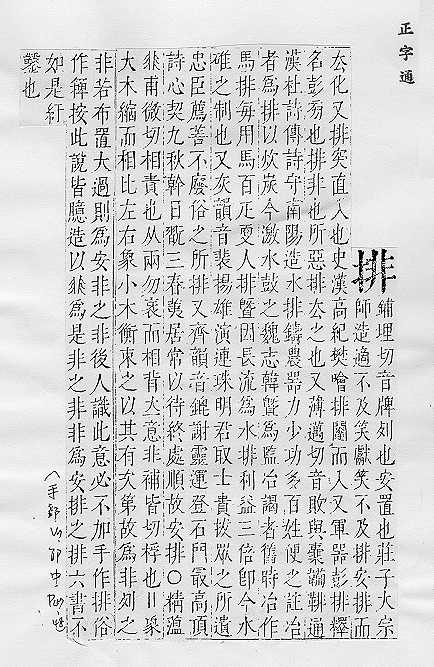 正字通
排
鋪埋切音牌列也安置也莊子大宗
師造適不及笑獻笑不及排安排而
去化又排突直入也史漢高紀樊噲排闥而入又軍器彭排釋
名彭旁也排非也所惡排去之也又薄邁切音敗與鞴通
漢杜詩傳詩守南陽造水排鑄農器力少功多百姓便之註冶
者為排以炊炭今激水鼓之魏志韓暨為監冶謁者舊時冶作
馬排每用馬百疋更人排暨因長流為水排利益三倍卽今水
碓之制也又灰韻音裴揚雄演連珠明君取士貴拔眾之所遺
忠臣薦善不廢俗之所排又齊韻音鎞謝靈運登石門最高頂
詩心契九秋幹日翫三春荑居常以待終處順故安排〇精薀
甫微切相背也从兩勿而相背大意非補皆切桴也象
大木縮而相比左右象小木衡束之以其有次第故為非列之
非若布置大過則為安非之非後人識此意必不加手作排俗
作棑按此說皆臆造以為是非之非非為安排之排六書不
如是紆
鑿也